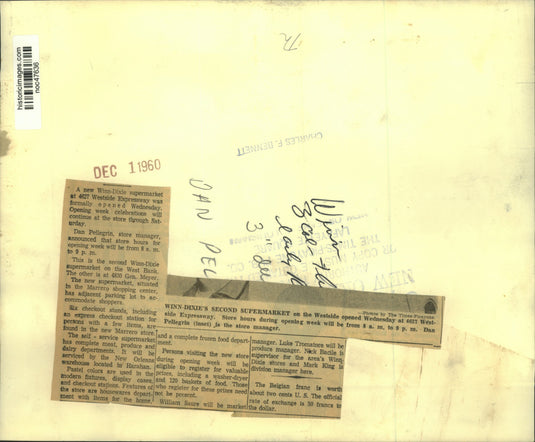 historicimages.com
noc47636
DEC 1 1960
CHARLES F. BENNETT
DAN PEL
Winn
3
A new Winn-Dixie supermarket
at 4627 Westside Expressway was
formally opened Wednesday.
Opening week celebrations will
continue at the store through Sat-
urday.
Dan Pellegrin, store manager,
announced that store hours for
opening week will be from 8 a. m.
to 9 p. m.
This is the second Winn-Dixie
supermarket on the West Bank.
The other is at 4830 Gen. Meyer.
The new supermarket, situated
in the Marrero shopping center,
has adjacent parking lot to ac-
commodate shoppers.
Six checkout stands, including
an express checkout station for
persons with a few items, are
found in the new Marrero store.
The self - service supermarket
has complete meat, produce and
dairy departments. It will be
serviced by the New Orleans
warehouse located in Harahan.
Pastel colors are used in the
modern fixtures, display cases
and checkout stations. Features of
the store are housewares depart-
ment with items for the home,
—Photos by The Times-Picayune.
WINN-DIXIE'S SECOND SUPERMARKET on the Westside opened Wednesday at 4627 West-
side Expressway. Store hours during opening week will be from 8 a. m. to 9 p. m. Dan
Pellegrin (inset) is the store manager.
and a complete frozen food depart-
ment.
Persons visiting the new store
during opening week will be
eligible to register for valuable
prizes, including a washer-dryer
and 120 baskets of food. Those
who register for these prizes need
not be present.
William Saure will be market
manager. Luke Tromatore will be
produce manager. Nick Bailik is
supervisor for the area's Winn-
Dixie stores and Mark King is
division manager here.
The Belgian franc is worth
about two cents U. S. The official
rate of exchange is 50 francs to
the dollar.